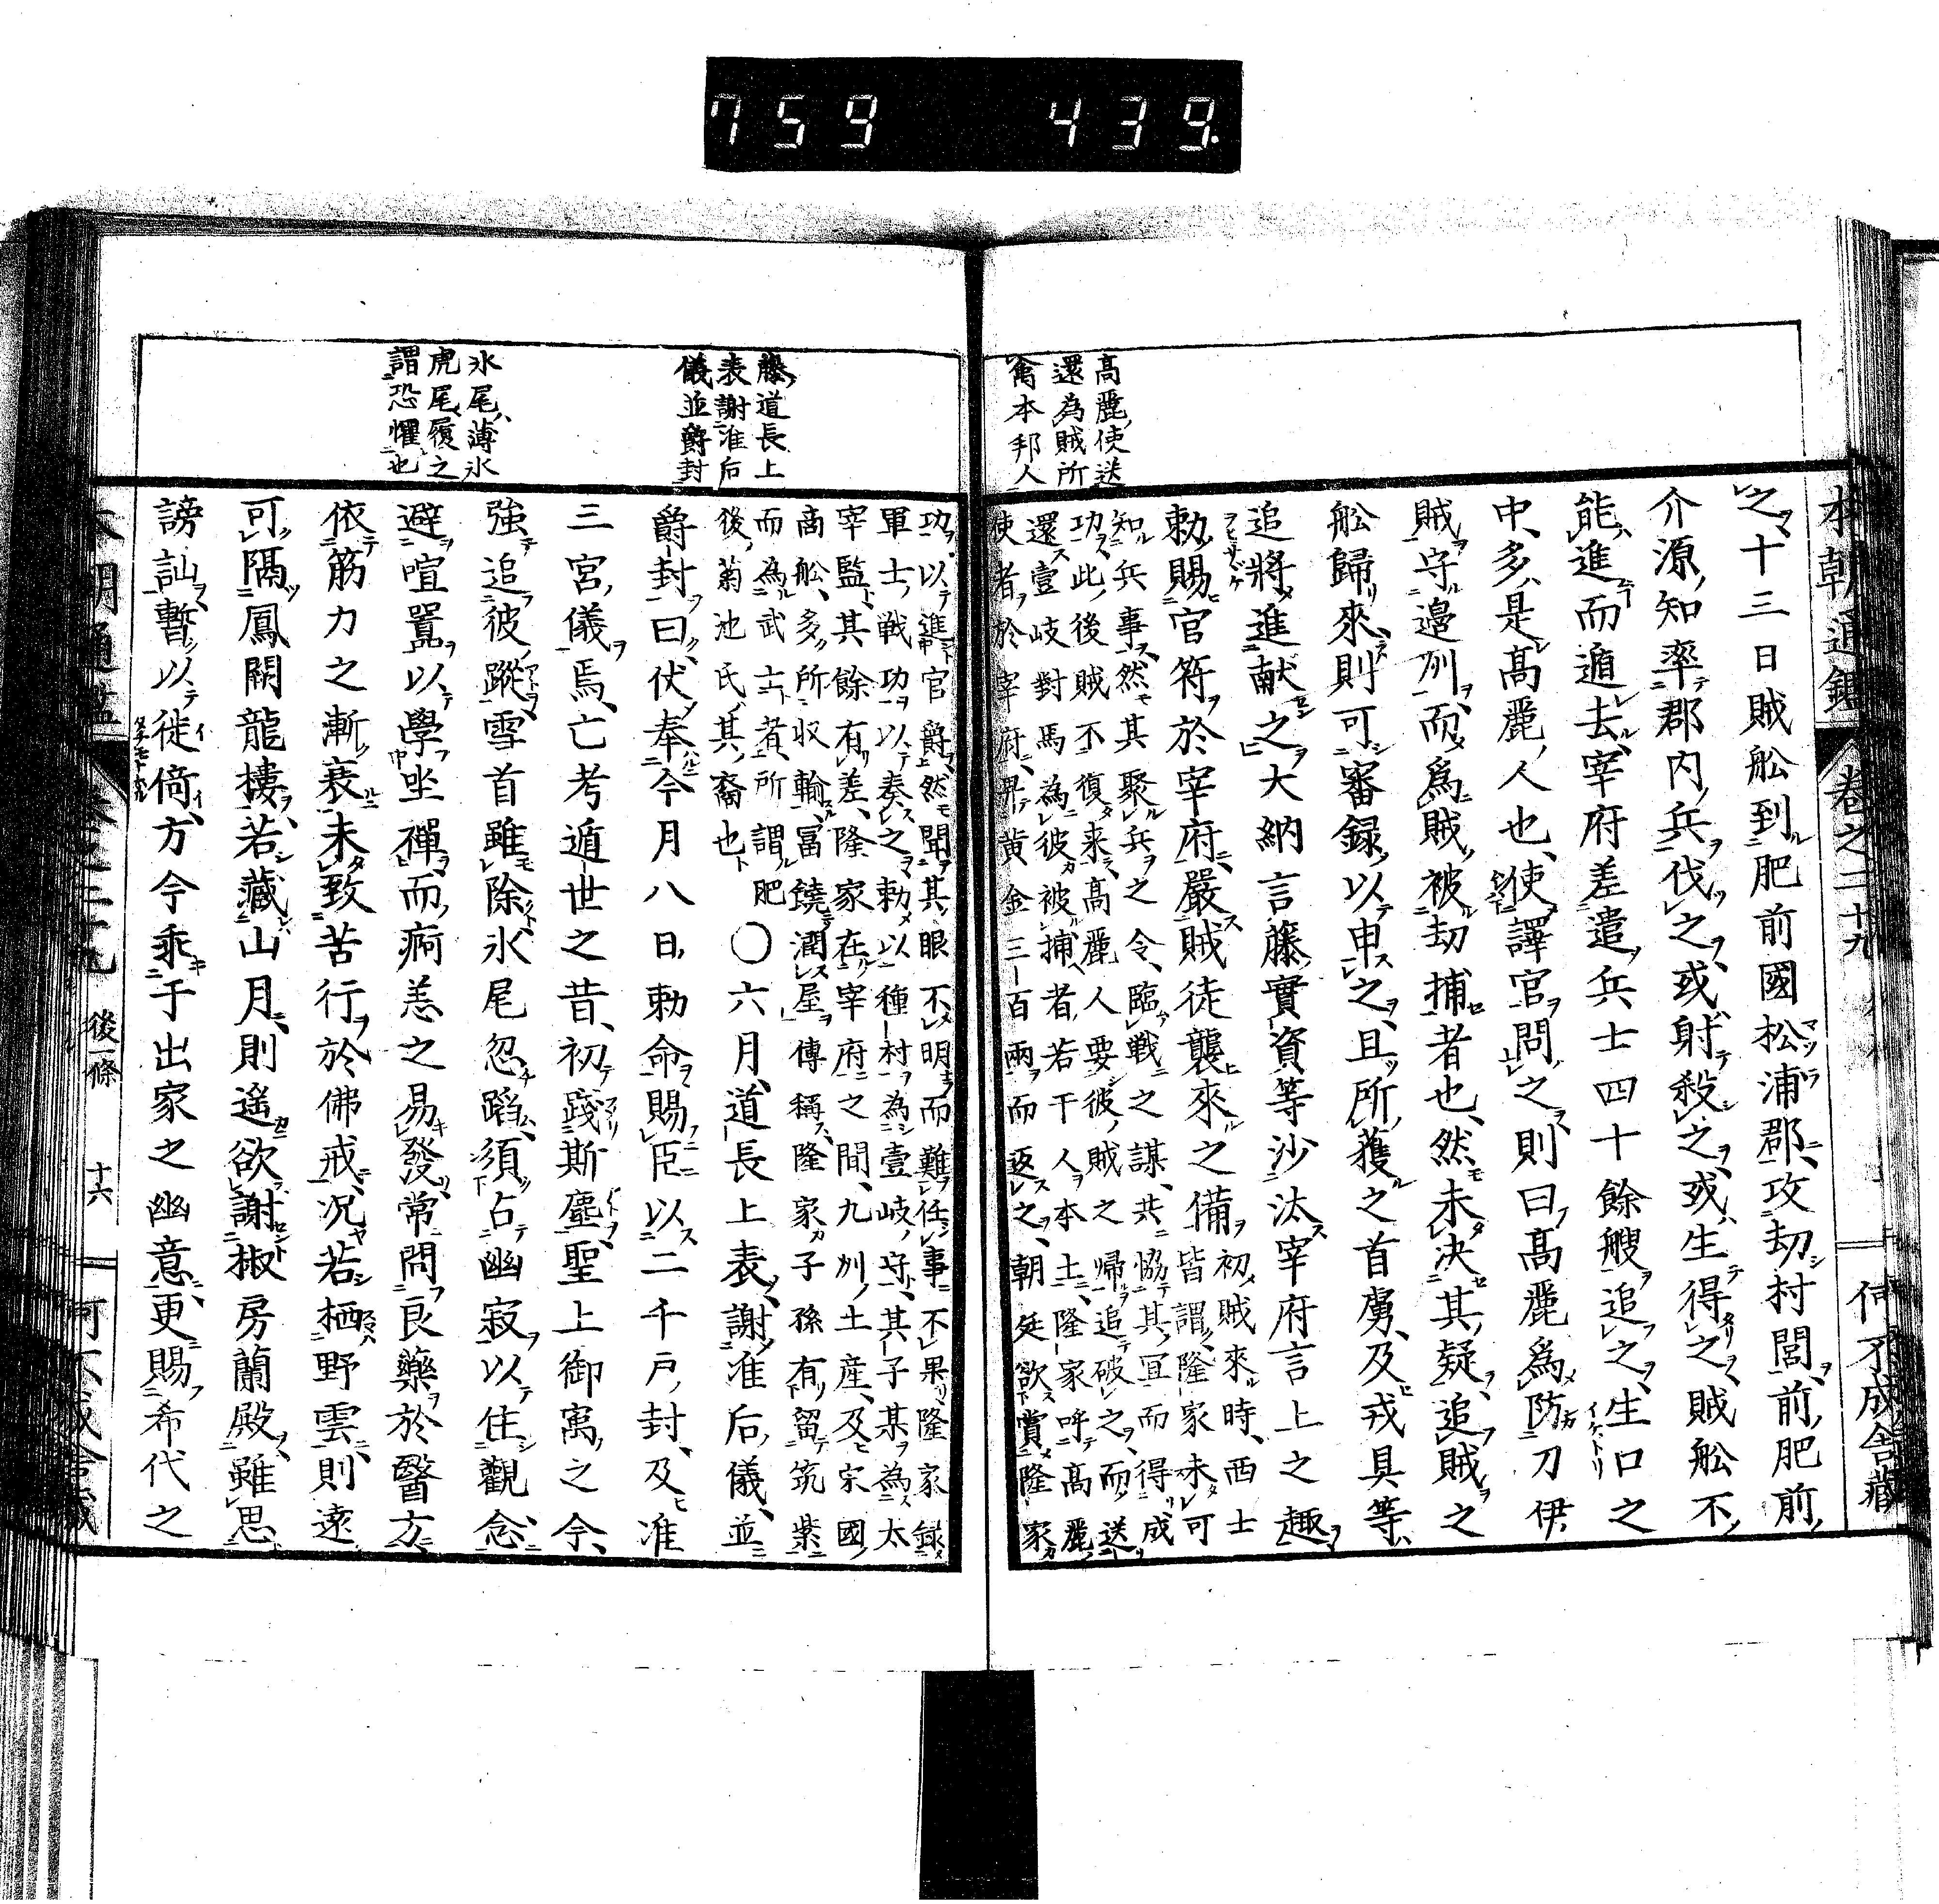 759 439
高麗使送
還為賊所
禽本邦人
之十三日賊舩到肥前國松浦郡攻劫村閭前肥前
介源知率郡内兵伐之或射殺之或生得之賊舩不
能進而遁去宰府差遣兵士四十餘艘追之生口之
中多是高麗人也使譯官問之則曰高麗為防刀伊
賊守邉州而為賊被劫捕者也然未决其疑追賊之
舩歸來則可審録以申之且所獲之首虜及戎具等
追將進献之大納言藤實資等沙汰宰府言上之趣
勅賜官符於宰府嚴賊徒襲來之備
初賊來時西士
皆謂隆家未可
知兵事然其聚兵之令臨戰之謀共協其宜而得成
功此後賊不復来高麗人要彼賊之帰追破之而送
還壹岐對馬為彼被捕者若干人本土隆家呼高麗
使者於宰府畀黄金三百兩而返之朝廷欲賞隆家
本朝通鑑 卷之二十九
藤道長上
表謝准后
儀並爵封
氷尾薄氷
虎尾履之
謂恐懼也
功以進官爵然聞其眼不明而難任事不果隆家録
軍士戦功以奏之勅以種村為壹岐守其子某為太
宰監其餘有差隆家在宰府之間九州土産及宋國
商舩多所収輸冨饒潤屋傳稱隆家子孫有留筑紫
而為武士者所謂肥
後菊池氏其裔也
〇六月道長上表謝准后儀並
爵封曰伏奉今月八日勅命賜臣以二千戸封及准
三宮儀焉亡考遁世之昔初踐斯塵聖上御㝢之今
強追彼蹤雪首雖除氷尾忽蹈須占幽寂以住觀念
避喧囂以學坐禪而痾恙之易發常問良藥於醫方
依筋力之漸衰未致苦行於佛戒况若栖野雲則遠
可隔鳳闕龍樓若藏山月則遥欲謝椒房蘭殿雖思
謗訕暫以徙倚方今乖于出家之幽意更賜希代之
後一條 十六